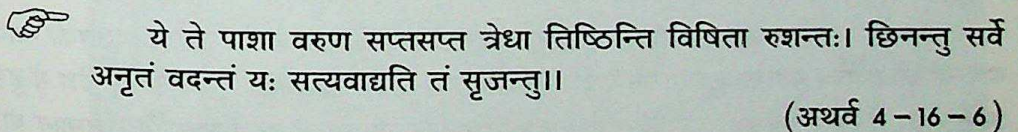 ये ते पाशा वरुण सप्तसप्त त्रेधा तिष्ठिन्ति विषिता रुशन्तः। छिनन्तु सर्वे
अनृतं वदन्तं यः सत्यवाद्यति तं सृजन्तु।।
(अथर्व 4-16-6)